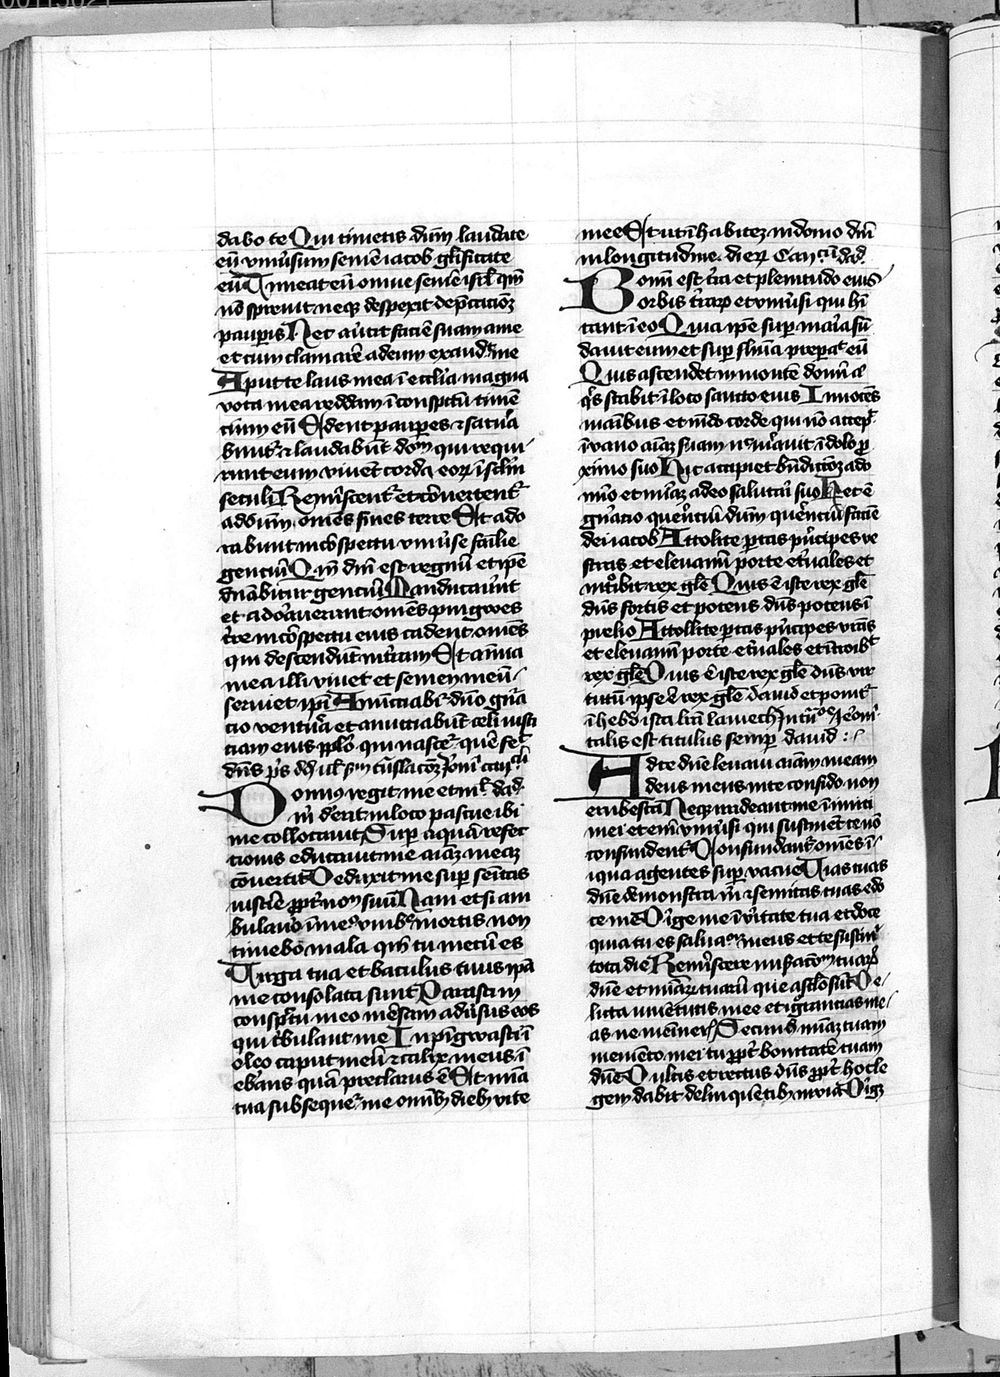 dabo te Qui timetis dūm laudate
eū vniūsum semē iacob gl̄ificate
eū Timeat eū omne semē isrl̄ qm̄
nō spreuit neqꝫ despexit dep̄cacōꝫ
paup̄is Nec aūtit faciē suam a me
et cum clamarē ad eum exaudit me
Aput te laus mea ī ecclīa magna
vota mea reddam ī conspc̄tu timē
cium eū Edent paup̄es ⁊ satura
bunt̄ ⁊ laudabūt dom̄ qui requi
runt eum viuēt corda eoꝝ ī sclm̄
seculi Reminiscent̄ et cōuertent̄
ad dūm omēs fines terre Et ado
rabunt in cōspectu vniūse familie
genciū Qm̄ dm̄ est regnū et ip̄e
dn̄abitur genciū Manducauer̄t
et adorauerunt omēs pingwes
t̄re in cōspectu eius cadent omēs
qui descendūt in t̄ram Et anīa
mea illi viuet et semen meū
seruiet ip̄i Anūnciabit̄ dn̄o gn̄ra
cio ventura et anunciabūt celi iusti
ciam eius pp̄lo qui nascet̄ quē fec̄
dūs
Dominꝰ regit me et nil̄
m̄ deerit in loco pascue ibi
me collocauit Sup̄ aquā refec
cionis educauit me aīaꝫ meaꝫ
cōuertit Deduxit me sup̄ semitas
iusticie ꝓpt̄ nomē suū Nam etsi am
bulauō ī meo vmbꝰ mortis non
timebo mala qm̄ tu mecū es
Uirga tua et baculus tuus ip̄a
me consolata sunt Parasti in
conspc̄tu meo mēsam adūsus eos
qui t̄bulant me Inpīgwasti ī
oleo caput meū ⁊ calix meus ī
ebⁱans quā preclarus ē Et mīa
tua subsequet̄ me omībꝫ diebꝫ vite
mee Et ut īhabiteꝫ in domo dn̄i
in longitudine dieꝝ
Domini est t̄ra et plenitudo eius
orbis t̄rarꝝ et vniūsi qui hī
tant ī eo Quia ip̄e sup̄ maria fū
dauit eum et sup̄ flūīa preparāt eū
Quis ascendet in monte domīi a
q̄s stabit ī loco sancto eius Innocēs
manibus et mūdo corde qui nō accep̄
ī vano aīaꝫ suam nec iurauit ī dolo ꝓ
ximo suo Hic accipiet bn̄diccōꝫ a do
mīo et mīaꝫ a deo salutari suo Hec ē
gn̄racio querenciū dūm querenciū faciē
dei iacob Attolite portas prīcipes ve
stras et eleuamī porte et̄nales et
introibit rex gl̄e Quis ē iste rex gl̄e
dūs fortis et potens dūs potens ī
prelio Attollite portas prīcipes vrās
et eleuamī porte et̄nales et ītroibit
rex gl̄e Quis ē iste rex gl̄e dūs vir
tutū ipse ē rex gl̄e dauid et ponit̄
ī hebreo ista lrā lamech
talis est titulus semp̄ dauid
Ad te dn̄e leuaui aīam meam
deus meus in te confido non
erubescā Neqꝫ irrideant me īimici
mei etenī vniūsi qui sustinēt te nō
confundent̄ Confundant̄ omēs ī
iqua agentes sup̄uacue Uias tuas
dn̄e demonstra m̄ ⁊ semitas tuas edo
ce me Dirige me ī vītate tua et doce
quia tu es saluator meus et te sustinui
tota die Reminiscere mīsacōm tuarꝝ
dn̄e et mīaꝝ tuarū que a sclo sūt De
licta iuuētutis mee et ignorancias me
as ne memineris Secund̄ mīaꝫ tuam
memēto mei tu ꝓpt̄ bonitatē tuam
dn̄e Dulcis et rectus dūs ꝓpt̄ hoc le
gem dabit delinquētibꝫ in via Dirigꝫ